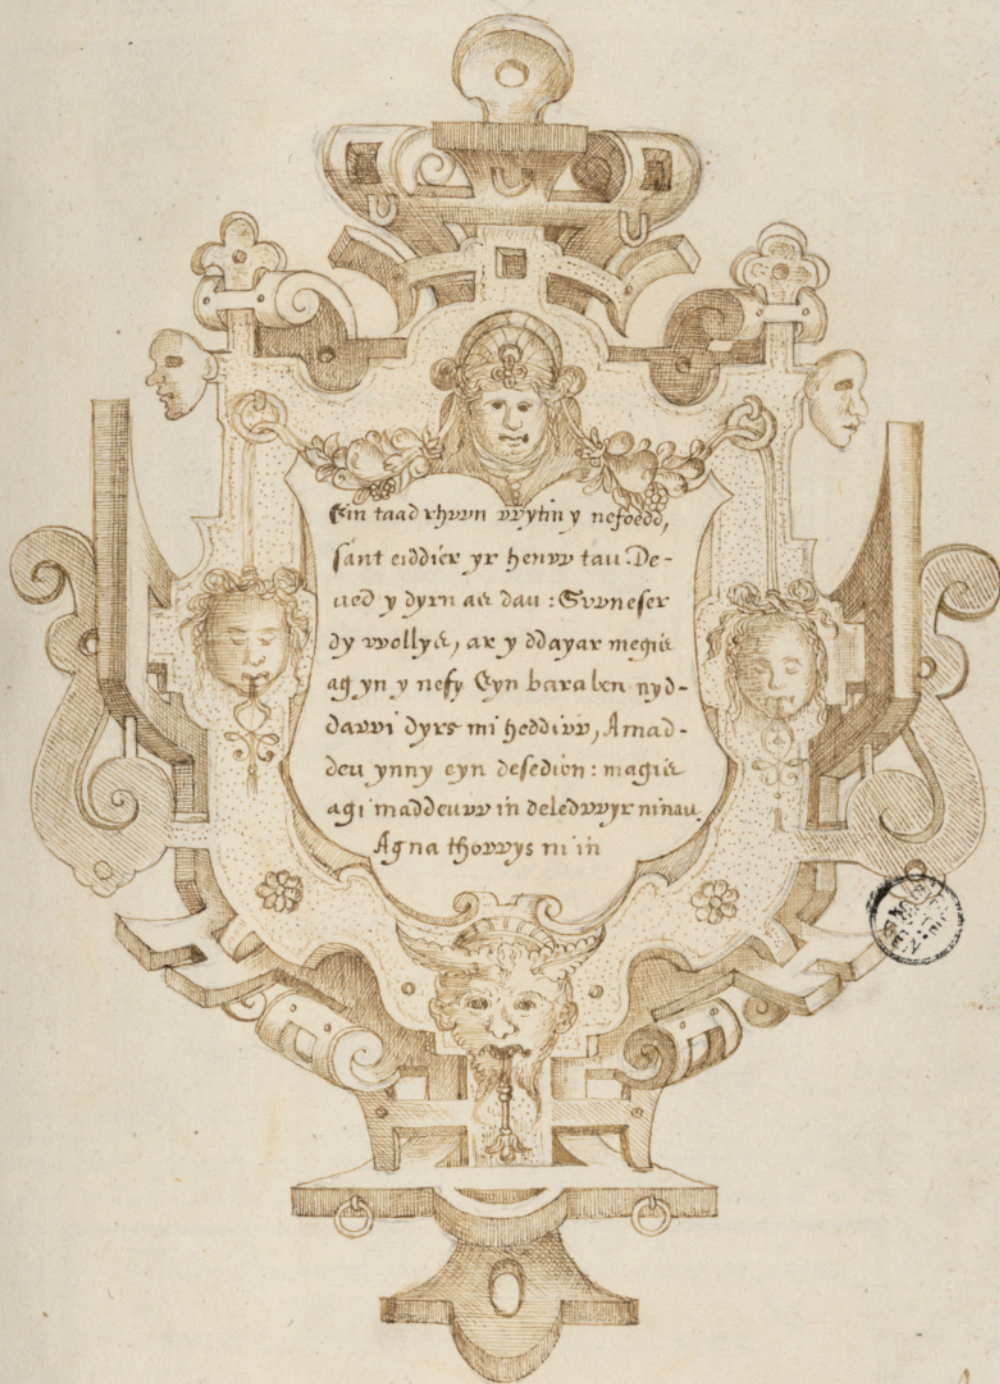 Ein taad rhvvn vvytin y nefoedd,
sant eiddier yr henvv tau. De-
ued y dyrn as dau : Gvvneser
dy vvollys, ar y ddayar megis
ag yn y nefy Eyn bara ben nyd-
davvi dyrs mi heddivv, Amad-
deu ynny eyn desedion : magis
agi maddeuvv in deledvvyr ninau.
Ag na thovvys ni in